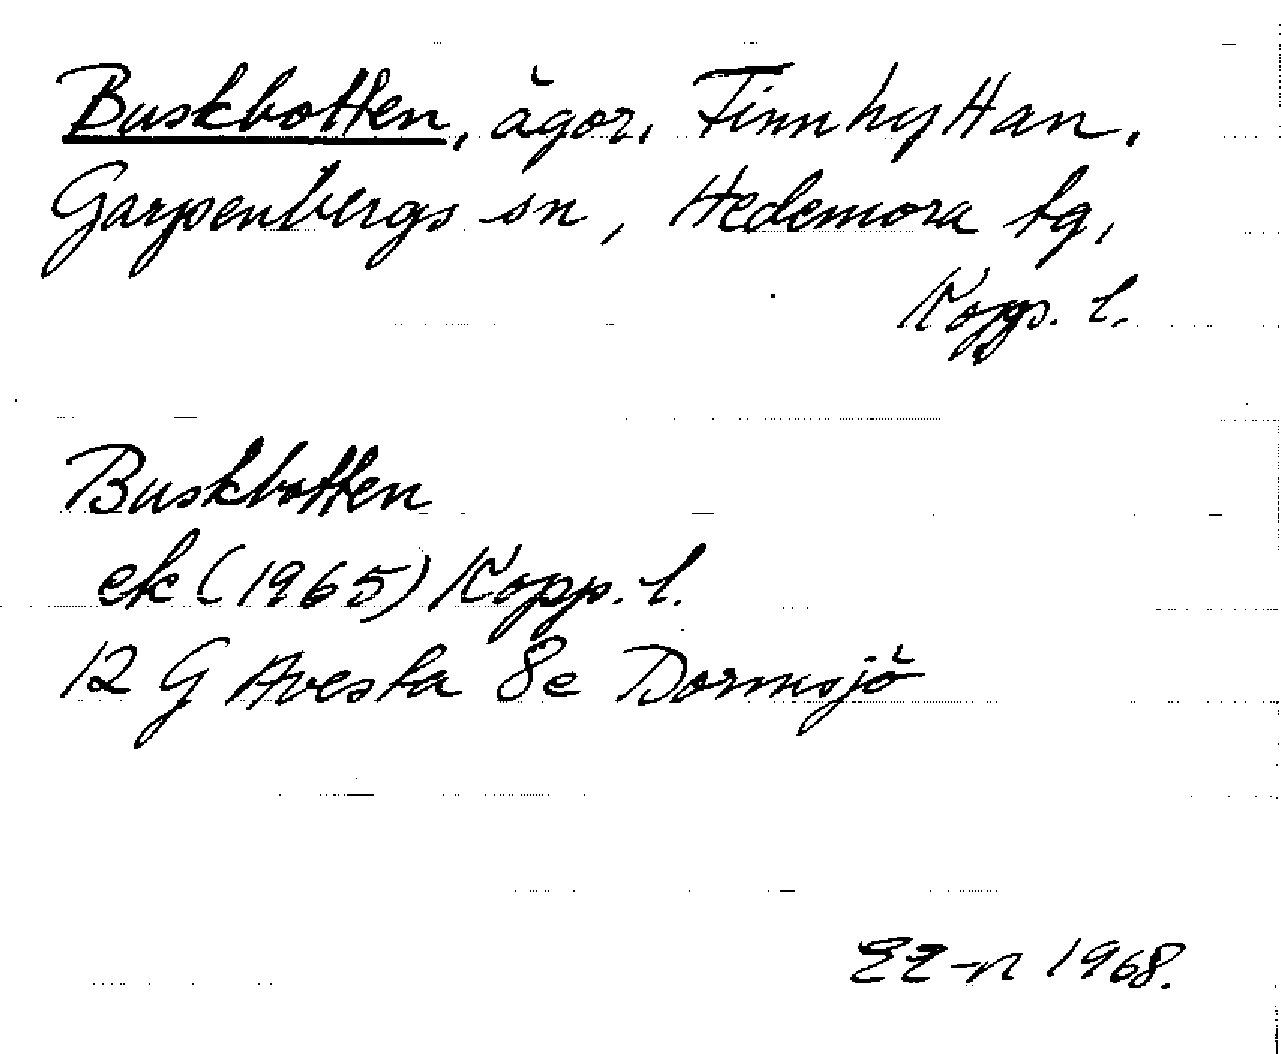 Buskbotten, ägor, Finnhyttan,
Garpenbergs sn, Hedemora tg,
Kopps. l.
Buskbotten
ek (1965) Kopp. l.
12 G Avesta 8e Dormsjö
EE-n 1968.